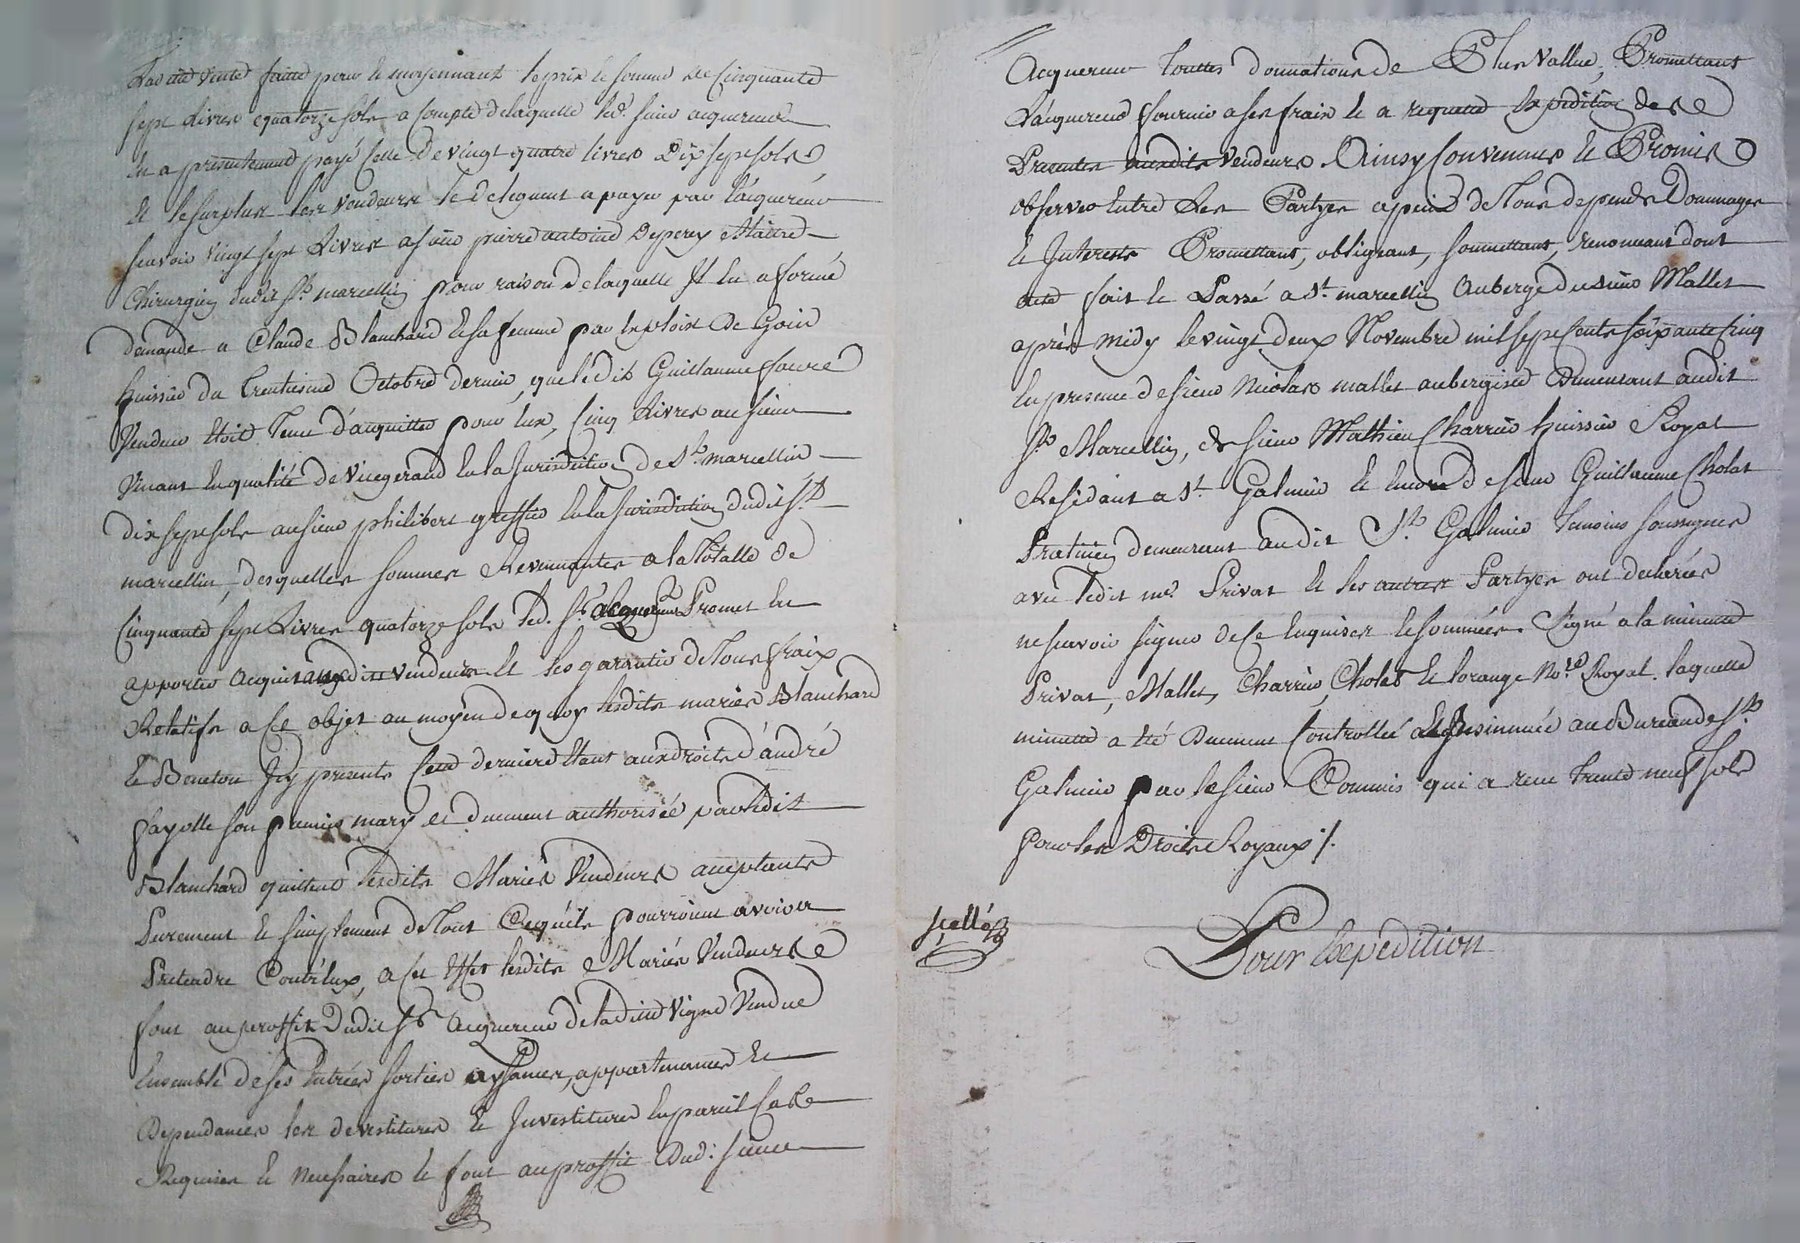 Ladite vente faitte pour et moyennant le prix et somme de Cinquante
sept Livres quatorze sols a compte de laquelle led. sieur acquereur
en a presentement payé Celle de vingt quatre livres Dix sept sols
et le surplus les vendeurs le deleguent a payer par l'acquereur
scavoir vingt sept Livres a sieur pierre antoine Deperey Maitre
Chirurgien dudit St. marcellin pour raison de laquelle Il en a formé
demande a Claude Blanchard et sa femme par exploit de Goin
huissier du trentieme Octobre dernier, que ledit Guillaume faure
Vendeur étoit tenu d'acquitter pour eux, Cinq Livres au sieur
Vinant en qualité de Vicegerand en la Jurisdiction de St. marcellin
dix sept sols au sieur philibert greffier en la Jurisdiction dudit St.
marcellin, desquelles sommes Revenantes a la Totalle de
Cinquante sept Livres quatorze sols led. Sr. acquereur Promet en
apporter acquit auxdits vendeurs et les garantir de Tous fraix
Relatifs a Cet objet au moyen de quoy lesdits mariés Blanchard
et Beneton Icy presents Cette derniere étant aux droits d'andré
fayolle son premier mary et duement authorisée par ledit
Blanchard quittent lesdits Mariés Vendeurs acceptants
Purement et simplement de Tout Ce qu'ils pourroient avoir a
Pretendre Contr'eux, a Cet effet lesdits Mariés Vendeurs
font au proffit Dudit Sr. acquereur de ladite Vigne Vendue
Ensemble de ses Entrées sorties aysances, appartenances et
Dependances les devestitures et Investitures en pareil Cas
Requises et necessaires et font au proffit Dud: sieur
Acquereur touttes donnations de Plus Vallue, Promettant
L'acquereur fournir a ses frais et a requette Expedition des
Presentes auxdits Vendeurs. Ainsy Convenues et Promis
observer Entre Les Partyes a peine de Tous depends Dommages
et Interests Promettant, obligeant, soumettant, renonceant dont
acte fait et Passé a St. marcellin auberge du sieur Mallet
après midy le vingt deux Novembre mil sept Cents soixante Cinq
En presence de sieur Nicolas mallet aubergiste Demeurant audit
St. Marcellin, de sieur Mathieu Charrin huissier Royal
Residant a St. Galmier et Encore de sieur Guillaume Cholat
Praticien demeurant audit St. Galmier temoins soussignes
avec ledit mr. Privat et les autres Partyes ont declarées
ne scavoir signer de Ce Enquises et sommées. Signé a la minutte
Privat, Mallet, Charrin, Cholat et lorange Nore. Royal. laquelle
minutte a été Duement Controllée et Insinuée au Bureau de St.
Galmier par le sieur Commis qui a reçu trente neuf sols
pour les Droits Royaux /.
scellé
Pour Expedition